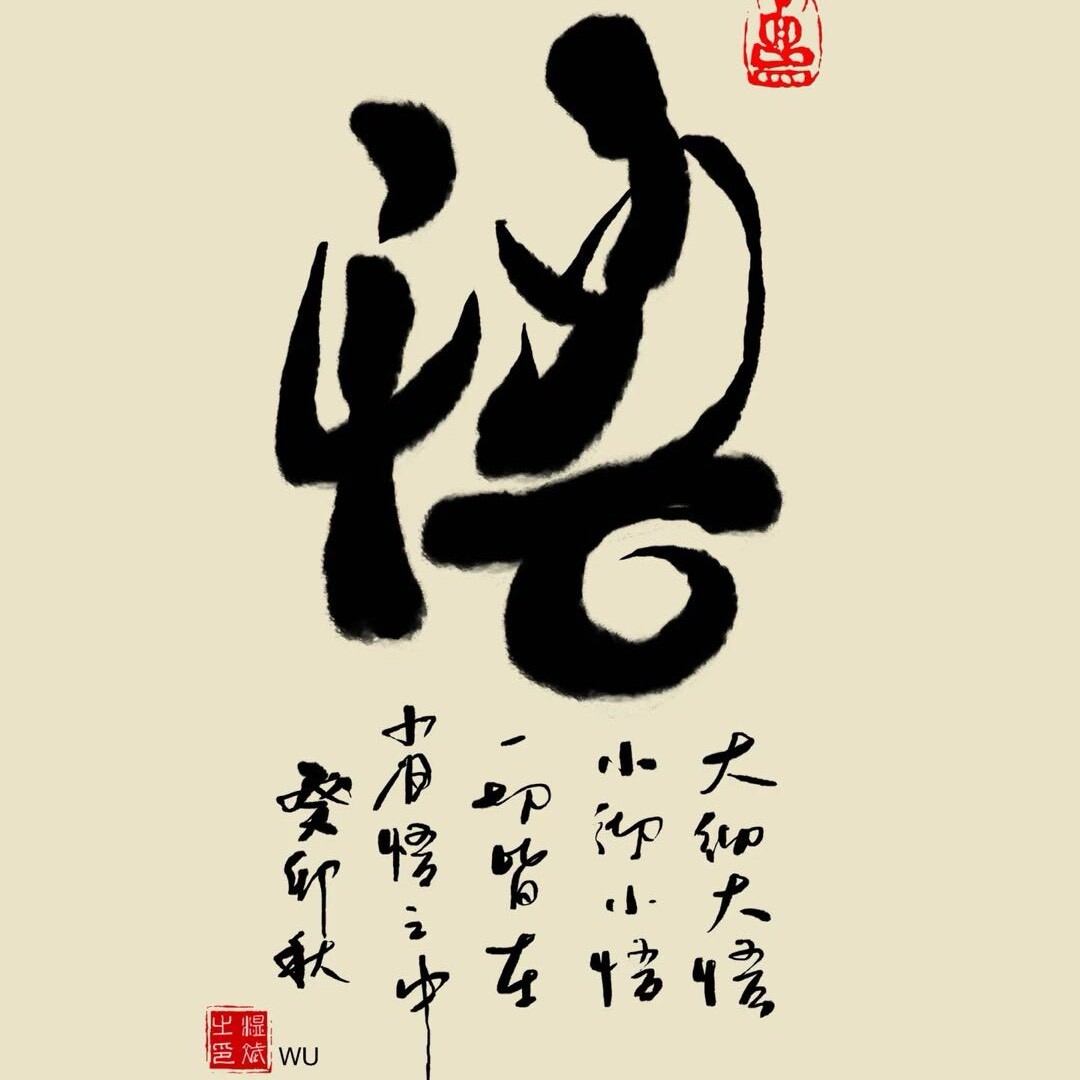 悟
大彻大悟
小彻小悟
一切皆在
省悟之中
癸卯秋
WU